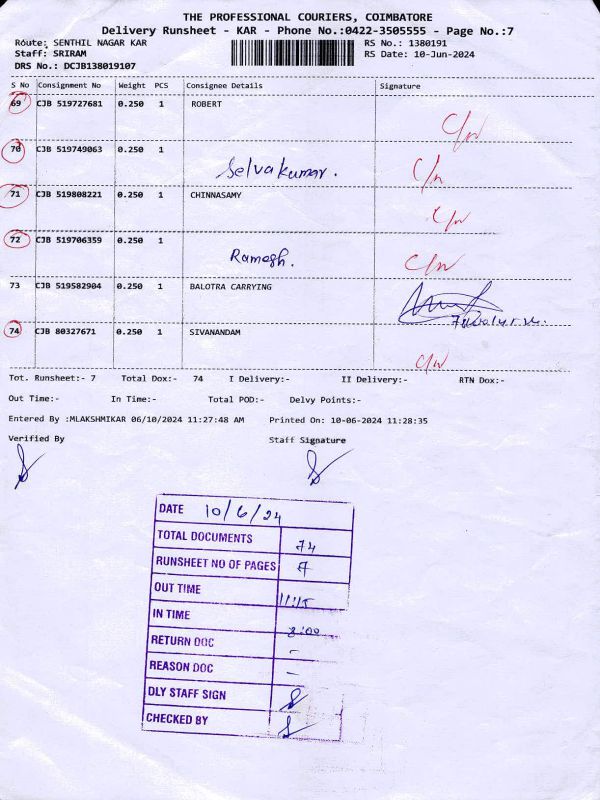 THE PROFESSIONAL COURIERS, COIMBATORE
Delivery Runsheet - KAR - Phone No.:0422-3505555 - Page No.:7
Route: SENTHIL NAGAR KAR RS No.: 1380191
Staff: SRIRAM RS Date: 10-Jun-2024
DRS No.: DCJB138019107
S No Consignment No Weight PCS Consignee Details Signature
69 CJB 519727681 0.250 1 ROBERT
C/w
70 CJB 519749063 0.250 1
Selvakumar. C/n
71 CJB 519808221 0.250 1 CHINNASAMY
C/w
72 CJB 519706359 0.250 1
Ramesh. C/w
73 CJB 519582904 0.250 1 BALOTRA CARRYING
74 CJB 80327671 0.250 1 SIVANANDAM
C/w
Tot. Runsheet:- 7 Total Dox:- 74 I Delivery:- II Delivery:- RTN Dox:-
Out Time:- In Time:- Total POD:- Delvy Points:-
Entered By :MLAKSHMIKAR 06/10/2024 11:27:48 AM Printed On: 10-06-2024 11:28:35
Verified By Staff Signature
DATE 10/6/24
TOTAL DOCUMENTS 74
RUNSHEET NO OF PAGES 7
OUT TIME 11:15
IN TIME 3:00
RETURN DOC -
REASON DOC -
DLY STAFF SIGN
CHECKED BY